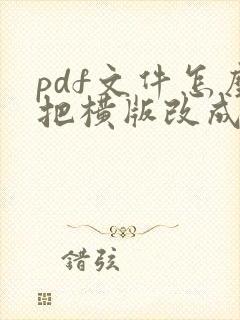 pdf文件怎
把横版改成
错弦